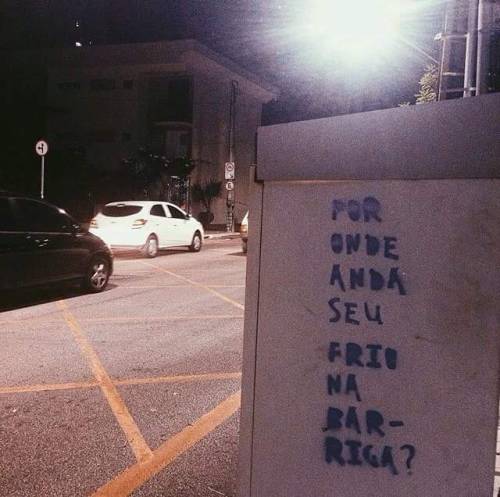 POR
ONDE
ANDA
SEU
FRIO
NA
BAR-
RIGA?